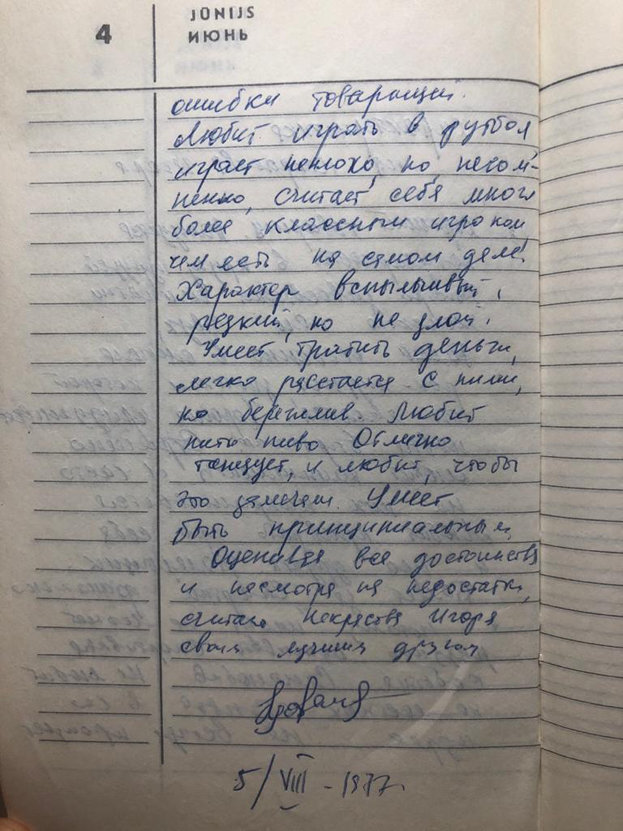 4
JŪNIJS
ИЮНЬ
ошибки товарищей.
Любит играть в футбол,
играет неплохо, но, несом-
ненно, считает себя много
более классным игроком,
чем есть на самом деле.
Характер вспыльчивый,
резкий, но не злой.
Умеет тратить деньги,
легко расстается с ними,
но бережлив. Любит
пить пиво. Отлично
танцует, и любит, чтобы
это замечали. Умеет
быть принципиальным.
Оценивая все достоинства
и несмотря на недостатки,
считаю Некрасова Игоря
своим лучшим другом
5/VIII - 1977.